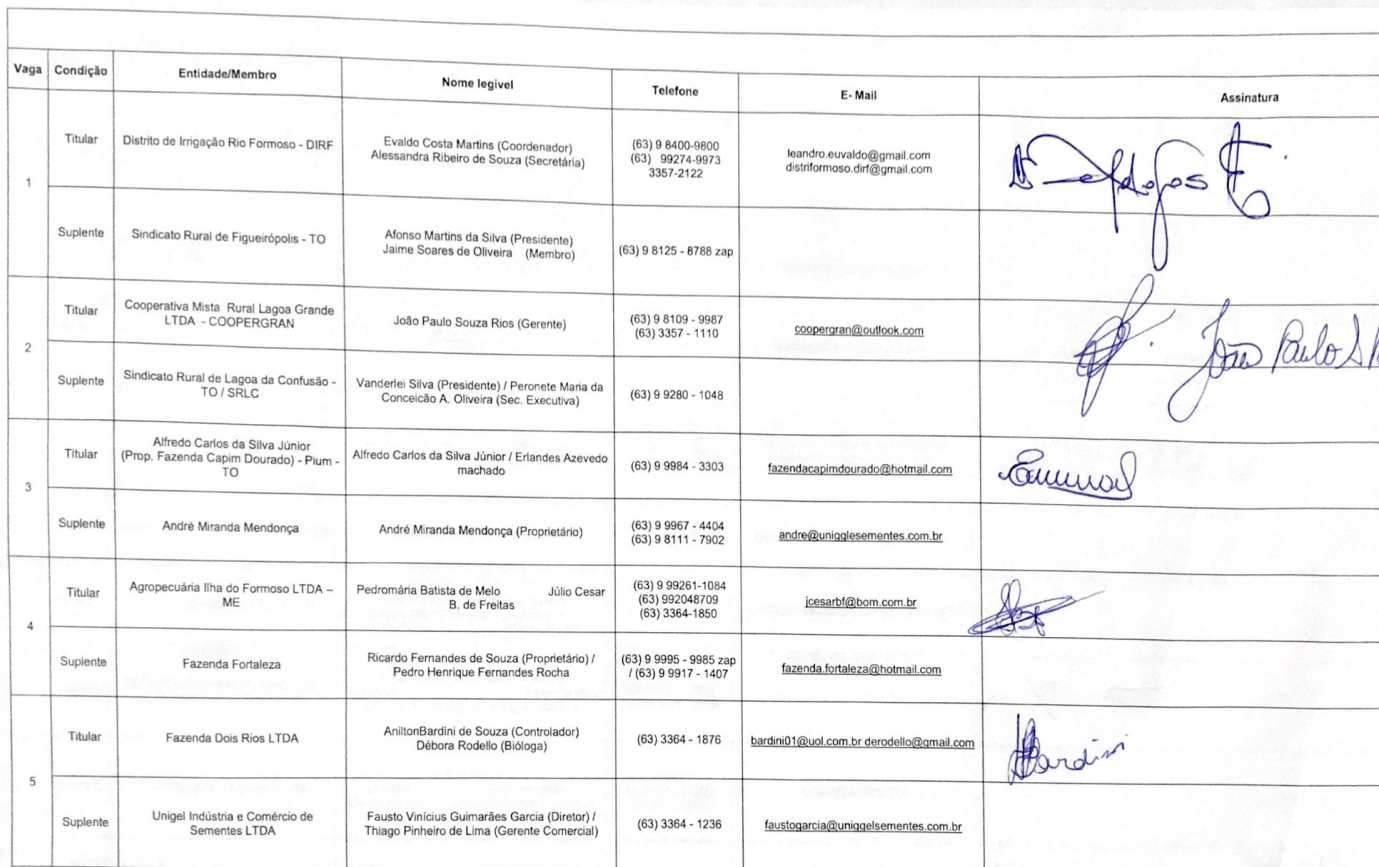 Vaga Condição Entidade/Membro Nome legivel Telefone E- Mail Assinatura
1
Titular
Distrito de Irrigação Rio Formoso - DIRF
Evaldo Costa Martins (Coordenador)
Alessandra Ribeiro de Souza (Secretária)
(63) 9 8400-9800
(63) 99274-9973
3357-2122
leandro.euvaldo@gmail.com
distriformoso.dirf@gmail.com
Suplente
Sindicato Rural de Figueirópolis - TO
Afonso Martins da Silva (Presidente)
Jaime Soares de Oliveira (Membro)
(63) 9 8125 - 8788 zap
2
Titular
Cooperativa Mista Rural Lagoa Grande
LTDA - COOPERGRAN
João Paulo Souza Rios (Gerente)
(63) 9 8109 - 9987
(63) 3357 - 1110
coopergran@outlook.com
João Paulo S
Suplente
Sindicato Rural de Lagoa da Confusão -
TO / SRLC
Vanderlei Silva (Presidente) / Peronete Maria da
Conceicão A. Oliveira (Sec. Executiva)
(63) 9 9280 - 1048
3
Titular
Alfredo Carlos da Silva Júnior
(Prop. Fazenda Capim Dourado) - Pium -
TO
Alfredo Carlos da Silva Júnior / Erlandes Azevedo
machado
(63) 9 9984 - 3303
fazendacapimdourado@hotmail.com
Suplente
André Miranda Mendonça
André Miranda Mendonça (Proprietário)
(63) 9 9967 - 4404
(63) 9 8111 - 7902
andre@unigglesementes.com.br
4
Titular
Agropecuária Ilha do Formoso LTDA –
ME
Pedromária Batista de Melo Júlio Cesar
B. de Freitas
(63) 9 99261-1084
(63) 992048709
(63) 3364-1850
jcesarbf@bom.com.br
Suplente
Fazenda Fortaleza
Ricardo Fernandes de Souza (Proprietário) /
Pedro Henrique Fernandes Rocha
(63) 9 9995 - 9985 zap
/ (63) 9 9917 - 1407
fazenda.fortaleza@hotmail.com
5
Titular
Fazenda Dois Rios LTDA
AniltonBardini de Souza (Controlador)
Débora Rodello (Bióloga)
(63) 3364 - 1876
bardini01@uol.com.br derodello@gmail.com
Bardini
Suplente
Unigel Indústria e Comércio de
Sementes LTDA
Fausto Vinícius Guimarães Garcia (Diretor) /
Thiago Pinheiro de Lima (Gerente Comercial)
(63) 3364 - 1236
faustogarcia@uniggelsementes.com.br